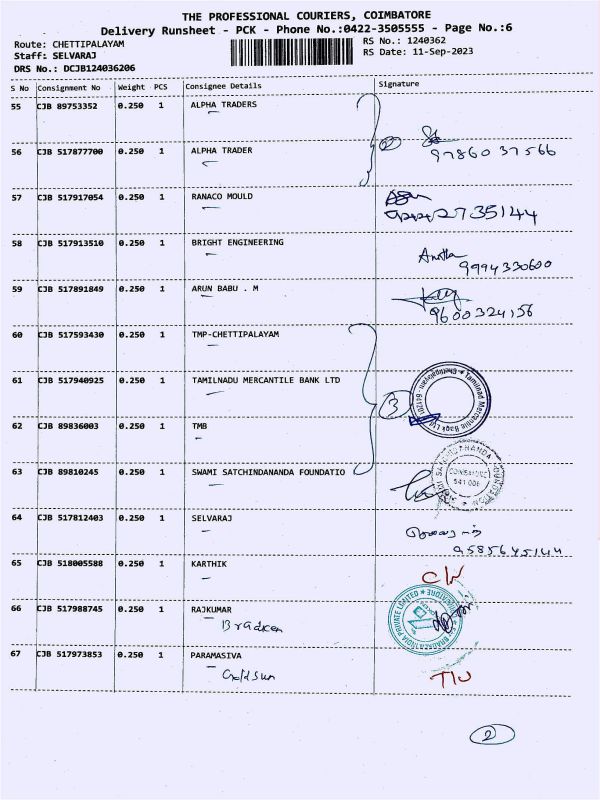 THE PROFESSIONAL COURIERS, COIMBATORE
Delivery Runsheet - PCK - Phone No.:0422-3505555 - Page No.:6
Route: CHETTIPALAYAM
RS No.: 1240362
Staff: SELVARAJ
RS Date: 11-Sep-2023
DRS No.: DCJB124036206
S No Consignment No Weight PCS Consignee Details Signature
55 CJB 89753352 0.250 1 ALPHA TRADERS
56 CJB 517877700 0.250 1 ALPHA TRADER
2 97860 37566
57 CJB 517917054 0.250 1 RANACO MOULD
2735144
58 CJB 517913510 0.250 1 BRIGHT ENGINEERING
9994330600
59 CJB 517891849 0.250 1 ARUN BABU . M
9600324156
60 CJB 517593430 0.250 1 TMP-CHETTIPALAYAM
61 CJB 517940925 0.250 1 TAMILNADU MERCANTILE BANK LTD
3 Tamilnad Mercantile Bank Ltd
62 CJB 89836003 0.250 1 TMB
63 CJB 89810245 0.250 1 SWAMI SATCHINDANANDA FOUNDATIO
COIMBATORE
641 006
64 CJB 517812403 0.250 1 SELVARAJ
9585645144
65 CJB 518005588 0.250 1 KARTHIK
C/N
66 CJB 517988745 0.250 1 RAJKUMAR
67 CJB 517973853 0.250 1 PARAMASIVA
Goldsun
2